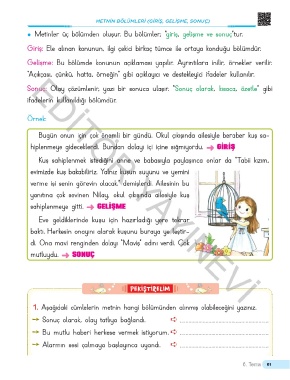 METNİN BÖLÜMLERİ (GİRİŞ, GELİŞME, SONUÇ)
• Metinler üç bölümden oluşur. Bu bölümler: "giriş, gelişme ve sonuç"tur.
Giriş: Ele alınan konunun, ilgi çekici birkaç cümle ile ortaya konduğu bölümdür.
Gelişme: Bu bölümde konunun açıklaması yapılır. Ayrıntılara inilir, örnekler verilir.
"Açıkcası, çünkü, hatta, örneğin" gibi açıklayıcı ve destekleyici ifadeler kullanılır.
Sonuç: Olay çözümlenir, yazı bir sonuca ulaşır. "Sonuç olarak, kısaca, özetle" gibi
ifadelerin kullanıldığı bölümdür.
Örnek:
Bugün onun için çok önemli bir gündü. Okul çıkışında ailesiyle beraber kuş sa-
hiplenmeye gideceklerdi. Bundan dolayı içi içine sığmıyordu. → GİRİŞ
Kuş sahiplenmek istediğini anne ve babasıyla paylaşınca onlar da "Tabii kızım,
evimizde kuş bakabiliriz. Yalnız kuşun suyunu ve yemini
verme işi senin görevin olacak." demişlerdi. Ailesinin bu
yanıtına çok sevinen Nilay, okul çıkışında ailesiyle kuş
sahiplenmeye gitti. → GELİŞME
Eve geldiklerinde kuşu için hazırladığı yere tekrar
baktı. Herkesin onayını alarak kuşunu buraya ye yleştir-
di. Ona mavi renginden dolayı "Maviş" adını verdi. Çok
mutluydu. → SONUÇ
PEKİŞTİRELİM
1. Aşağıdaki cümlelerin metnin hangi bölümünden alınmış olabileceğini yazınız.
Sonuç olarak, olay tatlıya bağlandı.
Bu mutlu haberi herkese vermek istiyorum.
Alarmın sesi çalmaya başlayınca uyandı.
6. Tema 61
EDİTÖR YAYINEVİ